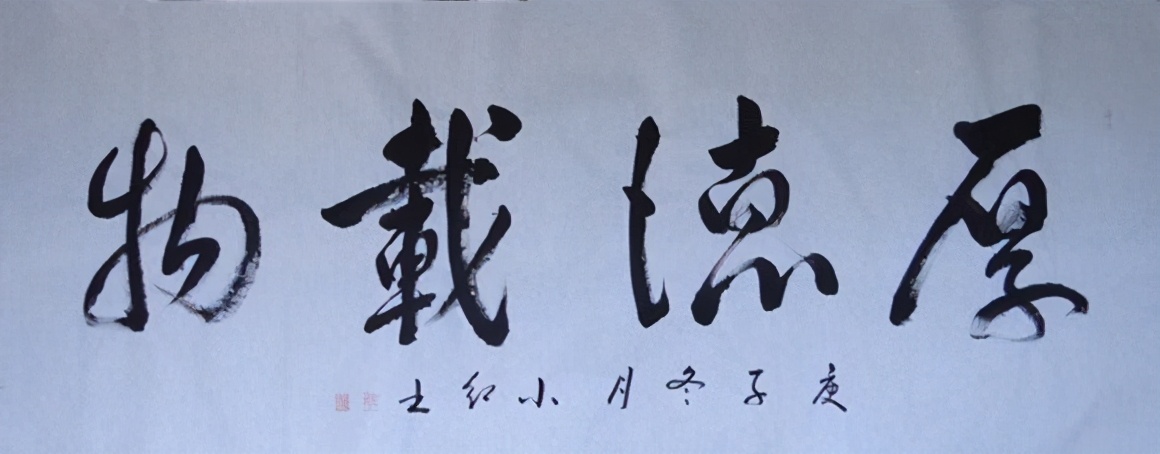 厚德載物
庚子冬月小红士